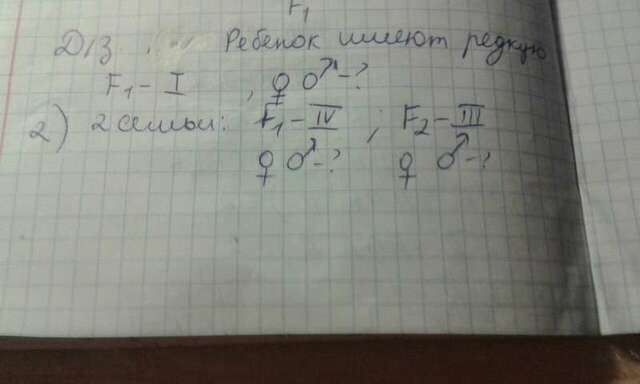 F₁
Д/З Ребенок имеют редкую
F₁ - I , ♀ ♂ - ?
2) 2 семьи: F₁ - IV ; F₂ - III
♀ ♂ - ? ♀ ♂ - ?